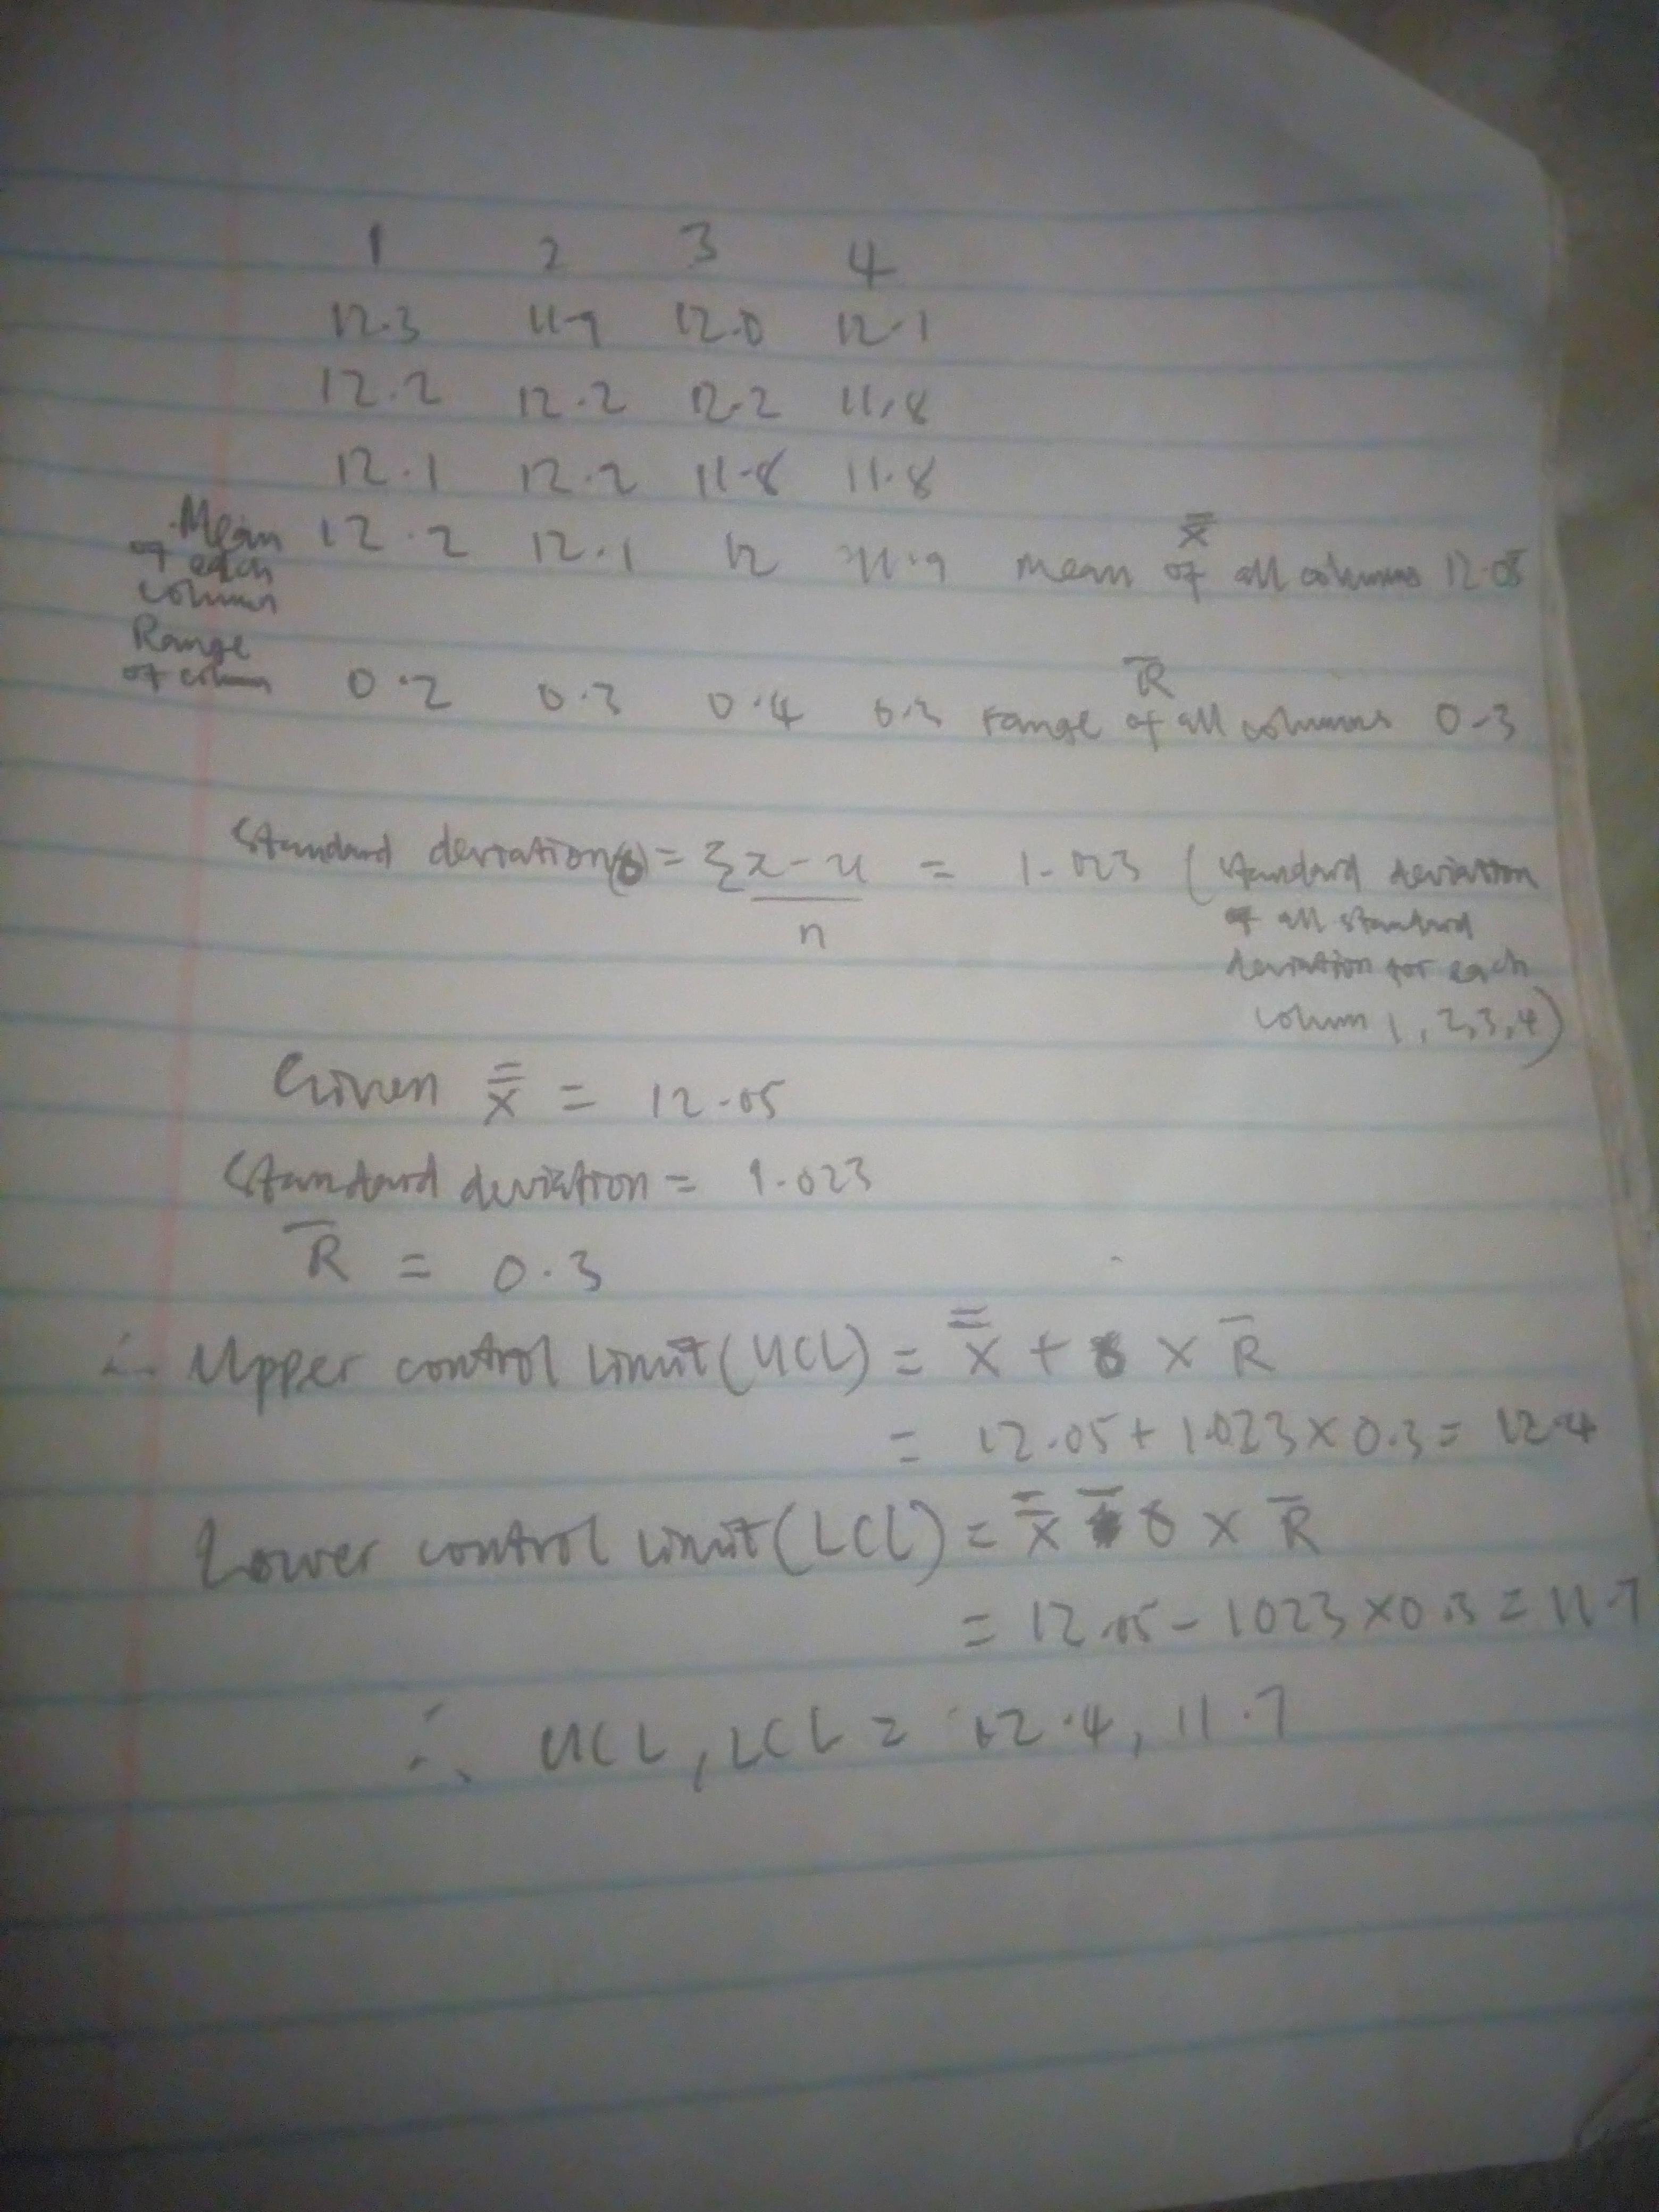 1 2 3 4
12.3 11.9 12.0 12.1
12.2 12.2 12.2 11.8
12.1 12.2 11.8 11.8
Mean of each column 12.2 12.1 12 11.9 mean of all columns X̿ 12.05
Range of column 0.2 0.3 0.4 0.3 range of all columns R̅ 0.3
Standard deviation(δ) = Σx-u / n = 1.023 (standard deviation
of all standard
deviation for each
column 1, 2,3,4)
Given X̿ = 12.05
Standard deviation = 1.023
R̅ = 0.3
∴ Upper control limit (UCL) = X̿ + δ × R̅
= 12.05 + 1.023 × 0.3 = 12.4
Lower control limit (LCL) = X̿ - δ × R̅
= 12.05 - 1023 × 0.3 = 11.7
∴ UCL, LCL = 12.4, 11.7